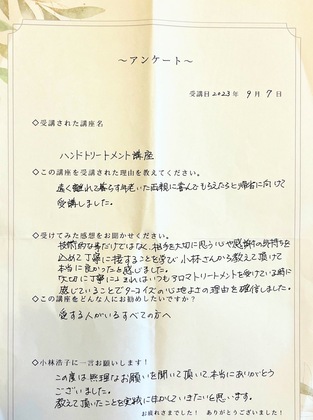 ～アンケート～
受講日2023年 9月7日
◇受講された講座名
ハンドトリートメント講座
◇この講座を受講された理由を教えてください。
遠く離れて暮らす年老いた両親に喜んでもらえたらと帰省に向けて
受講しました。
◇受けてみた感想をお聞かせください。
技術的な事だけではなく、相手を大切に思う心や感謝の気持ちを
込めて丁寧に接することを学び小林さんから教えて頂けて
本当に良かったと感じました。
大切に丁寧に いつもアロマトリートメントを受けている時に
感じていることでターコイズの心地よさの理由を確信しました。
◇この講座をどんな人にお勧めしたいですか？
愛する人がいるすべての方へ
◇小林浩子に一言お願いします！
この度は無理なお願いを聞いて頂いて本当にありがとう
ございました。
教えて頂いたことを実践に活かしていきたいと思います。
お疲れさまでした！ ありがとうございました！